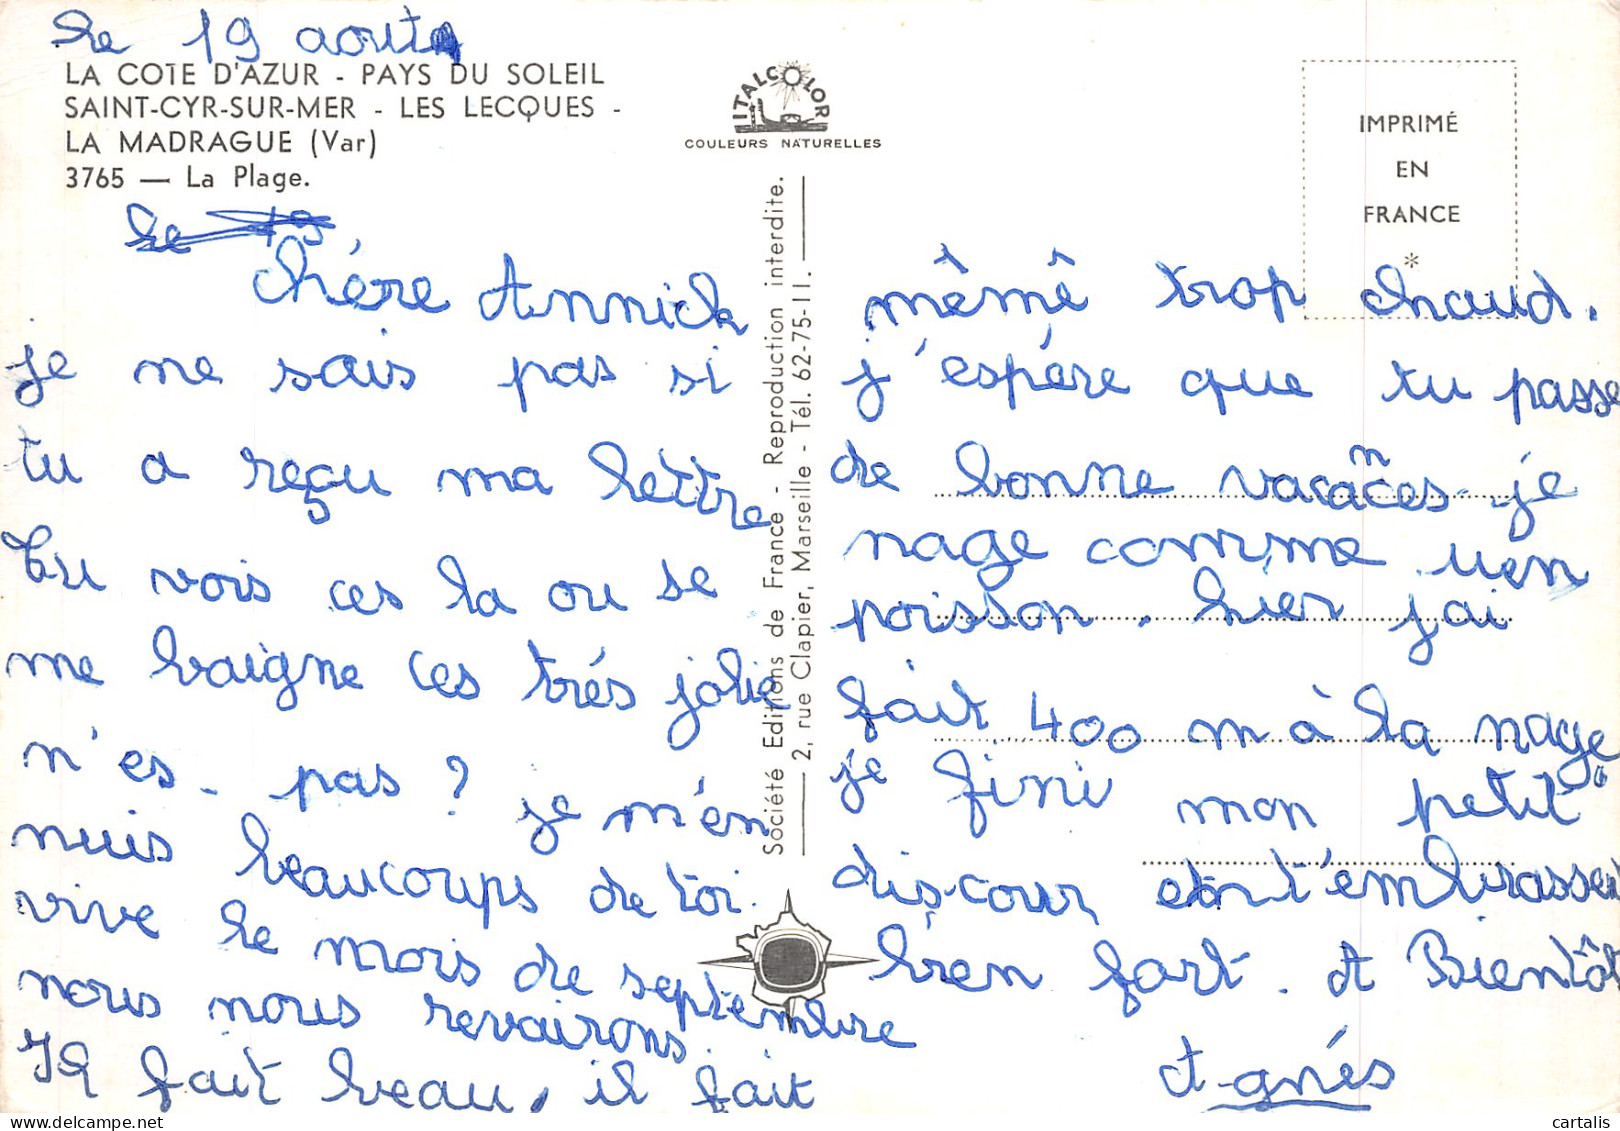 le 19 aout
LA COTE D'AZUR - PAYS DU SOLEIL
SAINT-CYR-SUR-MER - LES LECQUES -
LA MADRAGUE (Var)
3765 — La Plage.
le 19
chére Annick
je ne sais pas si
tu a reçu ma lettre
Tu vois ces la ou se
me baigne ces trés jolie
n'es-pas ? je m'en
nuis beaucoups de toi.
vive le mois de septembre
nous nous revairons.
Il fait beau, il fait
ITALCOLOR
COULEURS NATURELLES
Société Editions de France - Reproduction interdite.
2, rue Clapier, Marseille - Tél. 62-75-11.
IMPRIMÉ
EN
FRANCE
*
mêmê trop chaud.
j'espére que tu passe
de bonne vacances je
nage comme uen
poisson. hier j'ai
fait 400 m à la nage
je fini mon petit
dis-cour en t'embrassent
bien fort. A Bientôt
Agnés
cartalis